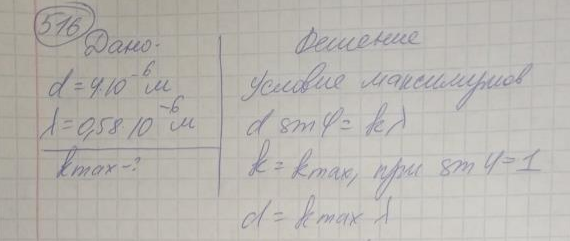 516
Дано.
d = 4·10⁻⁶ м
λ = 0,58·10⁻⁶ м
kmax -?
Решение
Условие максимумов
d sin φ = kλ
k = kmax, при sin φ = 1
d = kmax λ